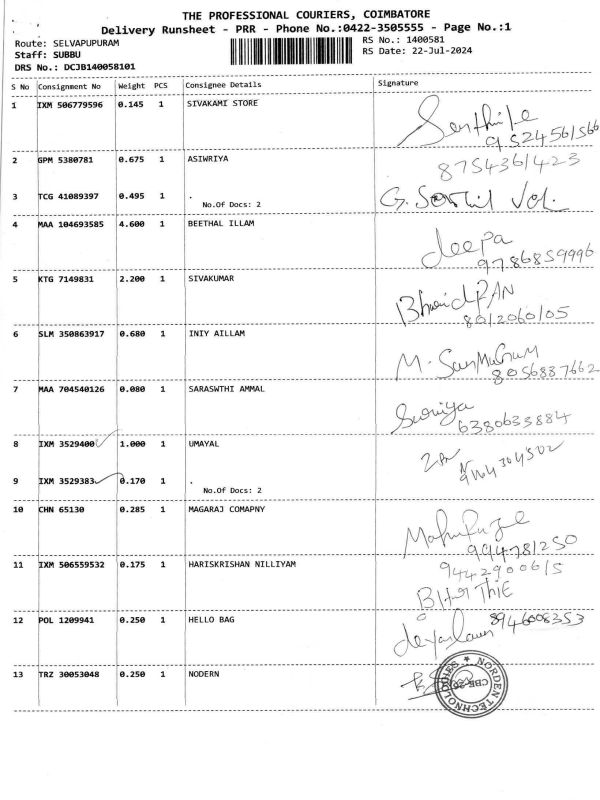 THE PROFESSIONAL COURIERS, COIMBATORE
Delivery Runsheet - PRR - Phone No.:0422-3505555 - Page No.:1
Route: SELVAPUPURAM
RS No.: 1400581
Staff: SUBBU
RS Date: 22-Jul-2024
DRS No.: DCJB140058101
S No Consignment No Weight PCS Consignee Details Signature
1 IXM 506779596 0.145 1 SIVAKAMI STORE
9524561566
2 GPM 5380781 0.675 1 ASIWRIYA 8754361423
3 TCG 41089397 0.495 1 .
No.Of Docs: 2
4 MAA 104693585 4.600 1 BEETHAL ILLAM
deepa
9786859996
5 KTG 7149831 2.200 1 SIVAKUMAR
8012060105
6 SLM 350863917 0.680 1 INIY AILLAM
8056887662
7 MAA 704540126 0.080 1 SARASWTHI AMMAL
6380633884
8 IXM 3529400 1.000 1 UMAYAL
9 IXM 3529383 0.170 1 .
No.Of Docs: 2
10 CHN 65130 0.285 1 MAGARAJ COMAPNY
994781250
11 IXM 506559532 0.175 1 HARISKRISHAN NILLIYAM
9442900615
12 POL 1209941 0.250 1 HELLO BAG 8946008353
13 TRZ 30053048 0.250 1 NODERN
NORDEN TECHNOLOGIES